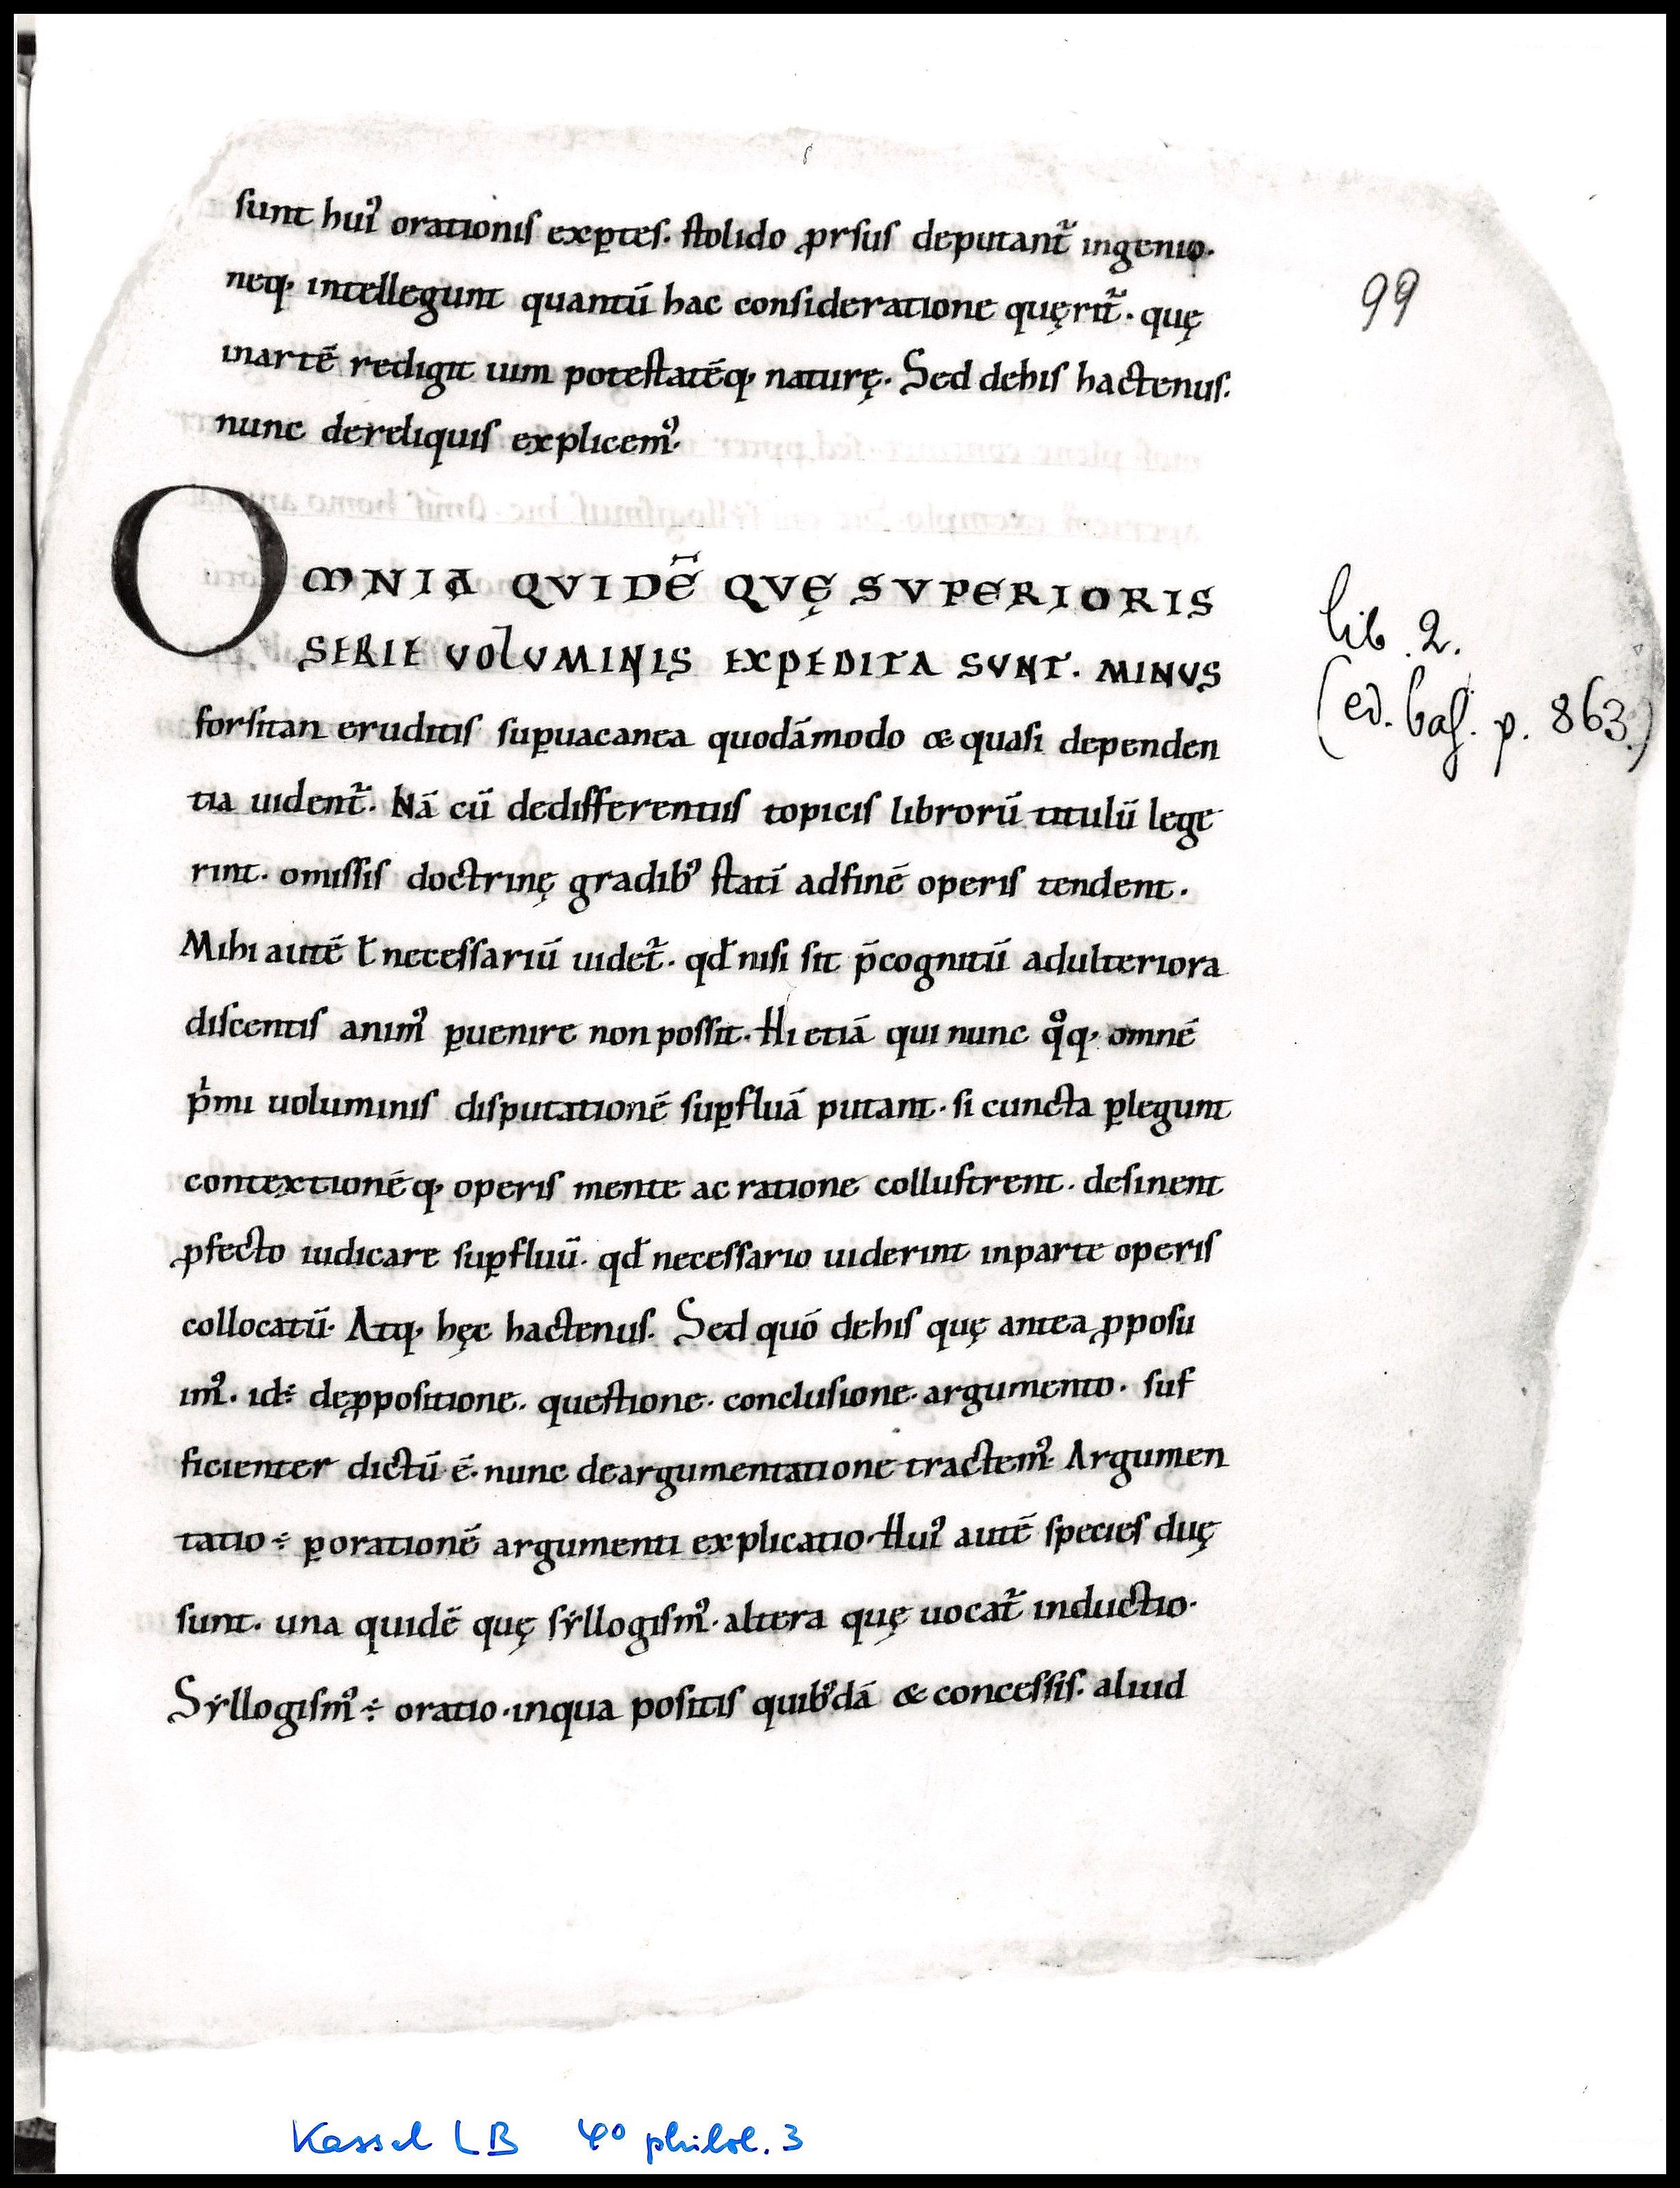 sunt hui᾽ orationis exꝑtes. stolido ꝓrsus deputant᷑ ingenio.
neq; intellegunt quantū hac consideratione quęrit᷑. quę
inartē redigit uim potestatēq; naturę. Sed dehis hactenus.
nunc dereliquis explicem᾽.
OMNIA QVIDĒ QVĘ SVPERIORIS
SERIE VOLVMINIS EXPEDITA SVNT. MINUS
forsitan eruditis suꝑuacanea quodāmodo & quasi dependen
tia uident᷑. Nā cū dedifferentiis topicis librorū titulū lege
rint. omissis doctrinę gradib᾽ statī adfinē operis tendent.
Mihi autē ł necessariū uidet᷑. qđ nisi sit p̄cognitū adulteriora
discentis anim᾽ ꝑuenire non possit. Hi etiā qui nunc qͦq; omnē
pͥmi uoluminis disputationē suꝑfluā putant. si cuncta ꝑlegunt
contextionēq; operis mente ac ratione collustrent. desinent
ꝓfecto iudicare suꝑfluū. qđ necessario uiderint inparte operis
collocatū. Atq; hęc hactenus. Sed quō dehis quę antea ꝓposu
im᾽. id÷ deꝓpositione. questione. conclusione. argumento. suf
ficienter dictū ē. nunc deargumentatione tractem᾽. Argumen
tatio ÷ ꝑorationē argumenti explicatio. Hui᾽ autē species duę
sunt. una quidē quę syllogism᾽. altera quę uocat᷑ inductio.
Syllogism᾽ ÷ oratio. inqua positis quib᾽dā & concessis. aliud
99
lib. 2.
(ed. bas. p. 863.)
Kassel LB 4° philol. 3